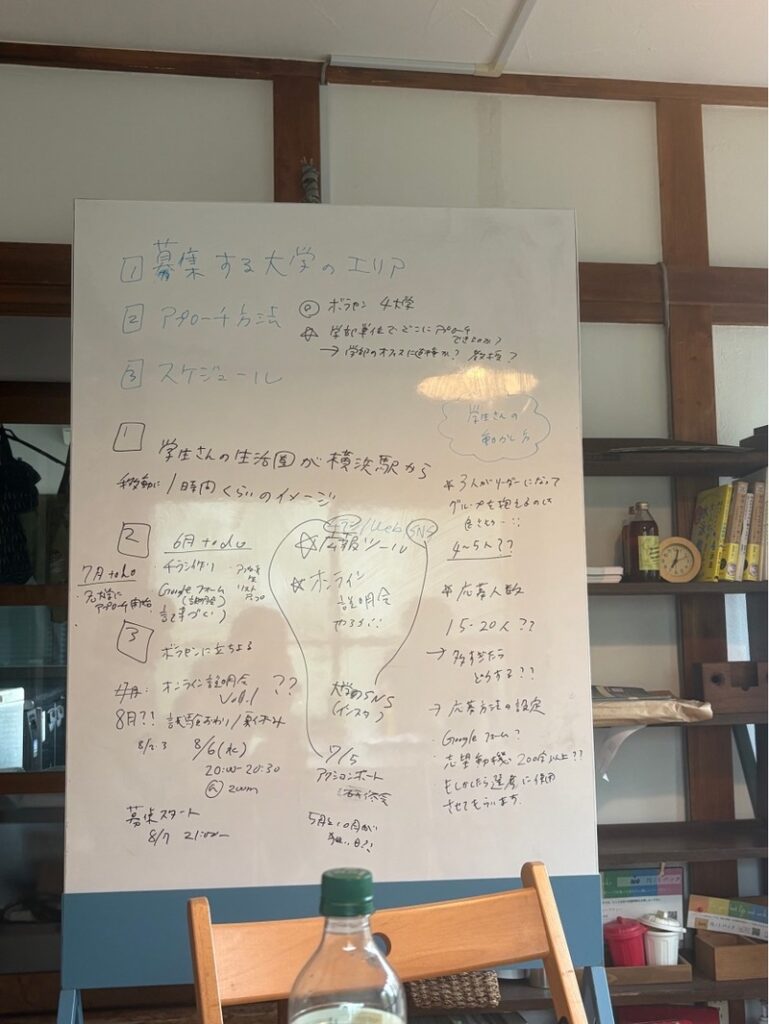 1 募集する大学のエリア
2 アプローチ方法
◎ ボラセン 4大学
☆ 学部単位でどこにアプローチ
できるのか?
→ 学部のオフィスに連絡か? 教授?
3 スケジュール
学生さんの
動かし方
1
学生さんの生活圏が横浜駅から
移動に 1時間くらいのイメージ
2
6月 todo
・チラシ作り
・Googleフォーム
(説明会)
・記事づくり
7月 todo
・各大学に
アプローチ開始
チラシ/Web/SNS
☆広報ツール
☆オンライン
説明会
やるなら!!
大学のSNS
(インスタ)
7/5
アクションポート
5月と10月が
狙い目?!
3
ボラセンに立ちよる
オンライン説明会
Vol.1 ??
8月?! 試験おわり/夏休み
8/2.3 8/6(水)
20:00-20:30
@ zoom
募集スタート
8/7 21:00〜
* 3人がリーダーになって
グループを抱えるのは
4~5人??
* 応募人数
15-20人??
→ 多すぎたら
どうする??
→ 応募方法の設定
・Googleフォーム?
・志望動機 200字以上??
・もしかしたら選考に使用
させてもらいます。